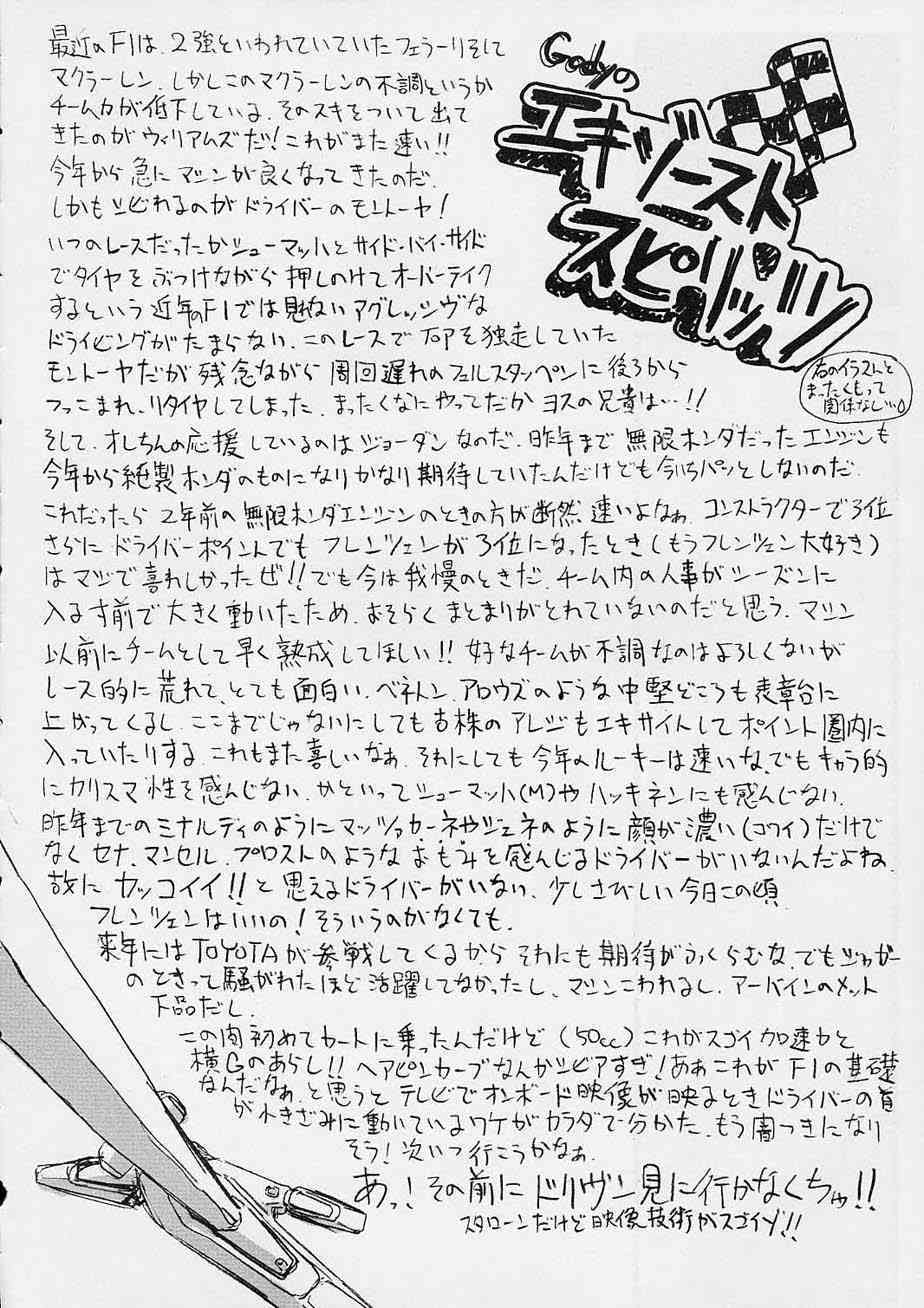 Godyの
エキゾースト
スピリッツ
右のイラストと
まったくもって
関係なし…。
最近のF1は、2強といわれていていたフェラーリそして
マクラーレン、しかしこのマクラーレンの不調というか
チーム力が低下している、そのスキをついて出て
きたのがウィリアムズだ!これがまた速い!!
今年から急にマシンが良くなってきたのだ、
しかもシビれるのがドライバーのモントーヤ!
いつのレースだったかシューマッハとサイド・バイ・サイド
でタイヤをぶつけながら押しのけてオーバーテイク
するという近年のF1では見ないアグレッシヴな
ドライビングがたまらない、このレースでTOPを独走していた
モントーヤだが残念ながら周回遅れのフェルスタッペンに後ろから
つっこまれ、リタイヤしてしまった、まったくなにやってだかヨスの兄貴は…!!
そして、オレちんの応援しているのはジョーダンなのだ、昨年まで無限ホンダだったエンジンも
今年から純製ホンダのものになりかなり期待していたんだけども今いちパッとしないのだ、
これだったら2年前の無限ホンダエンジンのときの方が断然速いよなぁ、コンストラクターで3位
さらにドライバーポイントでもフレンツェンが3位になったとき(もうフレンツェン大好き)
はマジで喜れしかったぜ!!でも今は我慢のときだ、チーム内の人事がシーズンに
入るす前で大きく動いたため、おそらくまとまりがとれていないのだと思う、マシン
以前にチームとして早く熟成してほしい!!好なチームが不調なのはよろしくないが
レース的に荒れて、とても面白い、ベネトン、アロウズのような中堅どころも表章台に
上がってくるし、ここまでじゃないにしても古株のアレジもエキサイトしてポイント圏内に
入っていたりする、これもまた喜しいなぁ、それにしても今年のルーキーは速いな、でもキャラ的
にカリスマ性を感んじない、かといってシューマッハ(M)やハッキネンにも感んじない、
昨年までのミナルディのようにマッツァカーネやジェネのように顔が濃い(コワイ)だけで
なくセナ、マンセル、プロストのようなおもみを感んじるドライバーがいないんだよね、
故にカッコイイ!!と思えるドライバーがいない、少しさびしい今日この頃
フレンツェンはいいの!そういうのがなくても、
来年にはTOYOTAが参戦してくるからそれにも期待がふくらむな、でもジャガー
のときって騒がれたほど活躍してなかったし、マシンこわれるし、アーバインのメット
下品だし、
この間初めてカートに乗ったんだけど(50cc)これがスゴイ加速力と
横Gのあらし!!ヘアピンカーブなんかシビアすぎ!あぁこれがF1の基礎
なんだなぁ、と思うとテレビでオンボード映像が映るときドライバーの首
が小きざみに動いているワケがカラダで分かた、もう闇つきになり
そう!次いつ行こうかなぁ、
あっ!その前にドリヴン見に行かなくちゃ!!
スタローンだけど映像技術がスゴイゾ!!